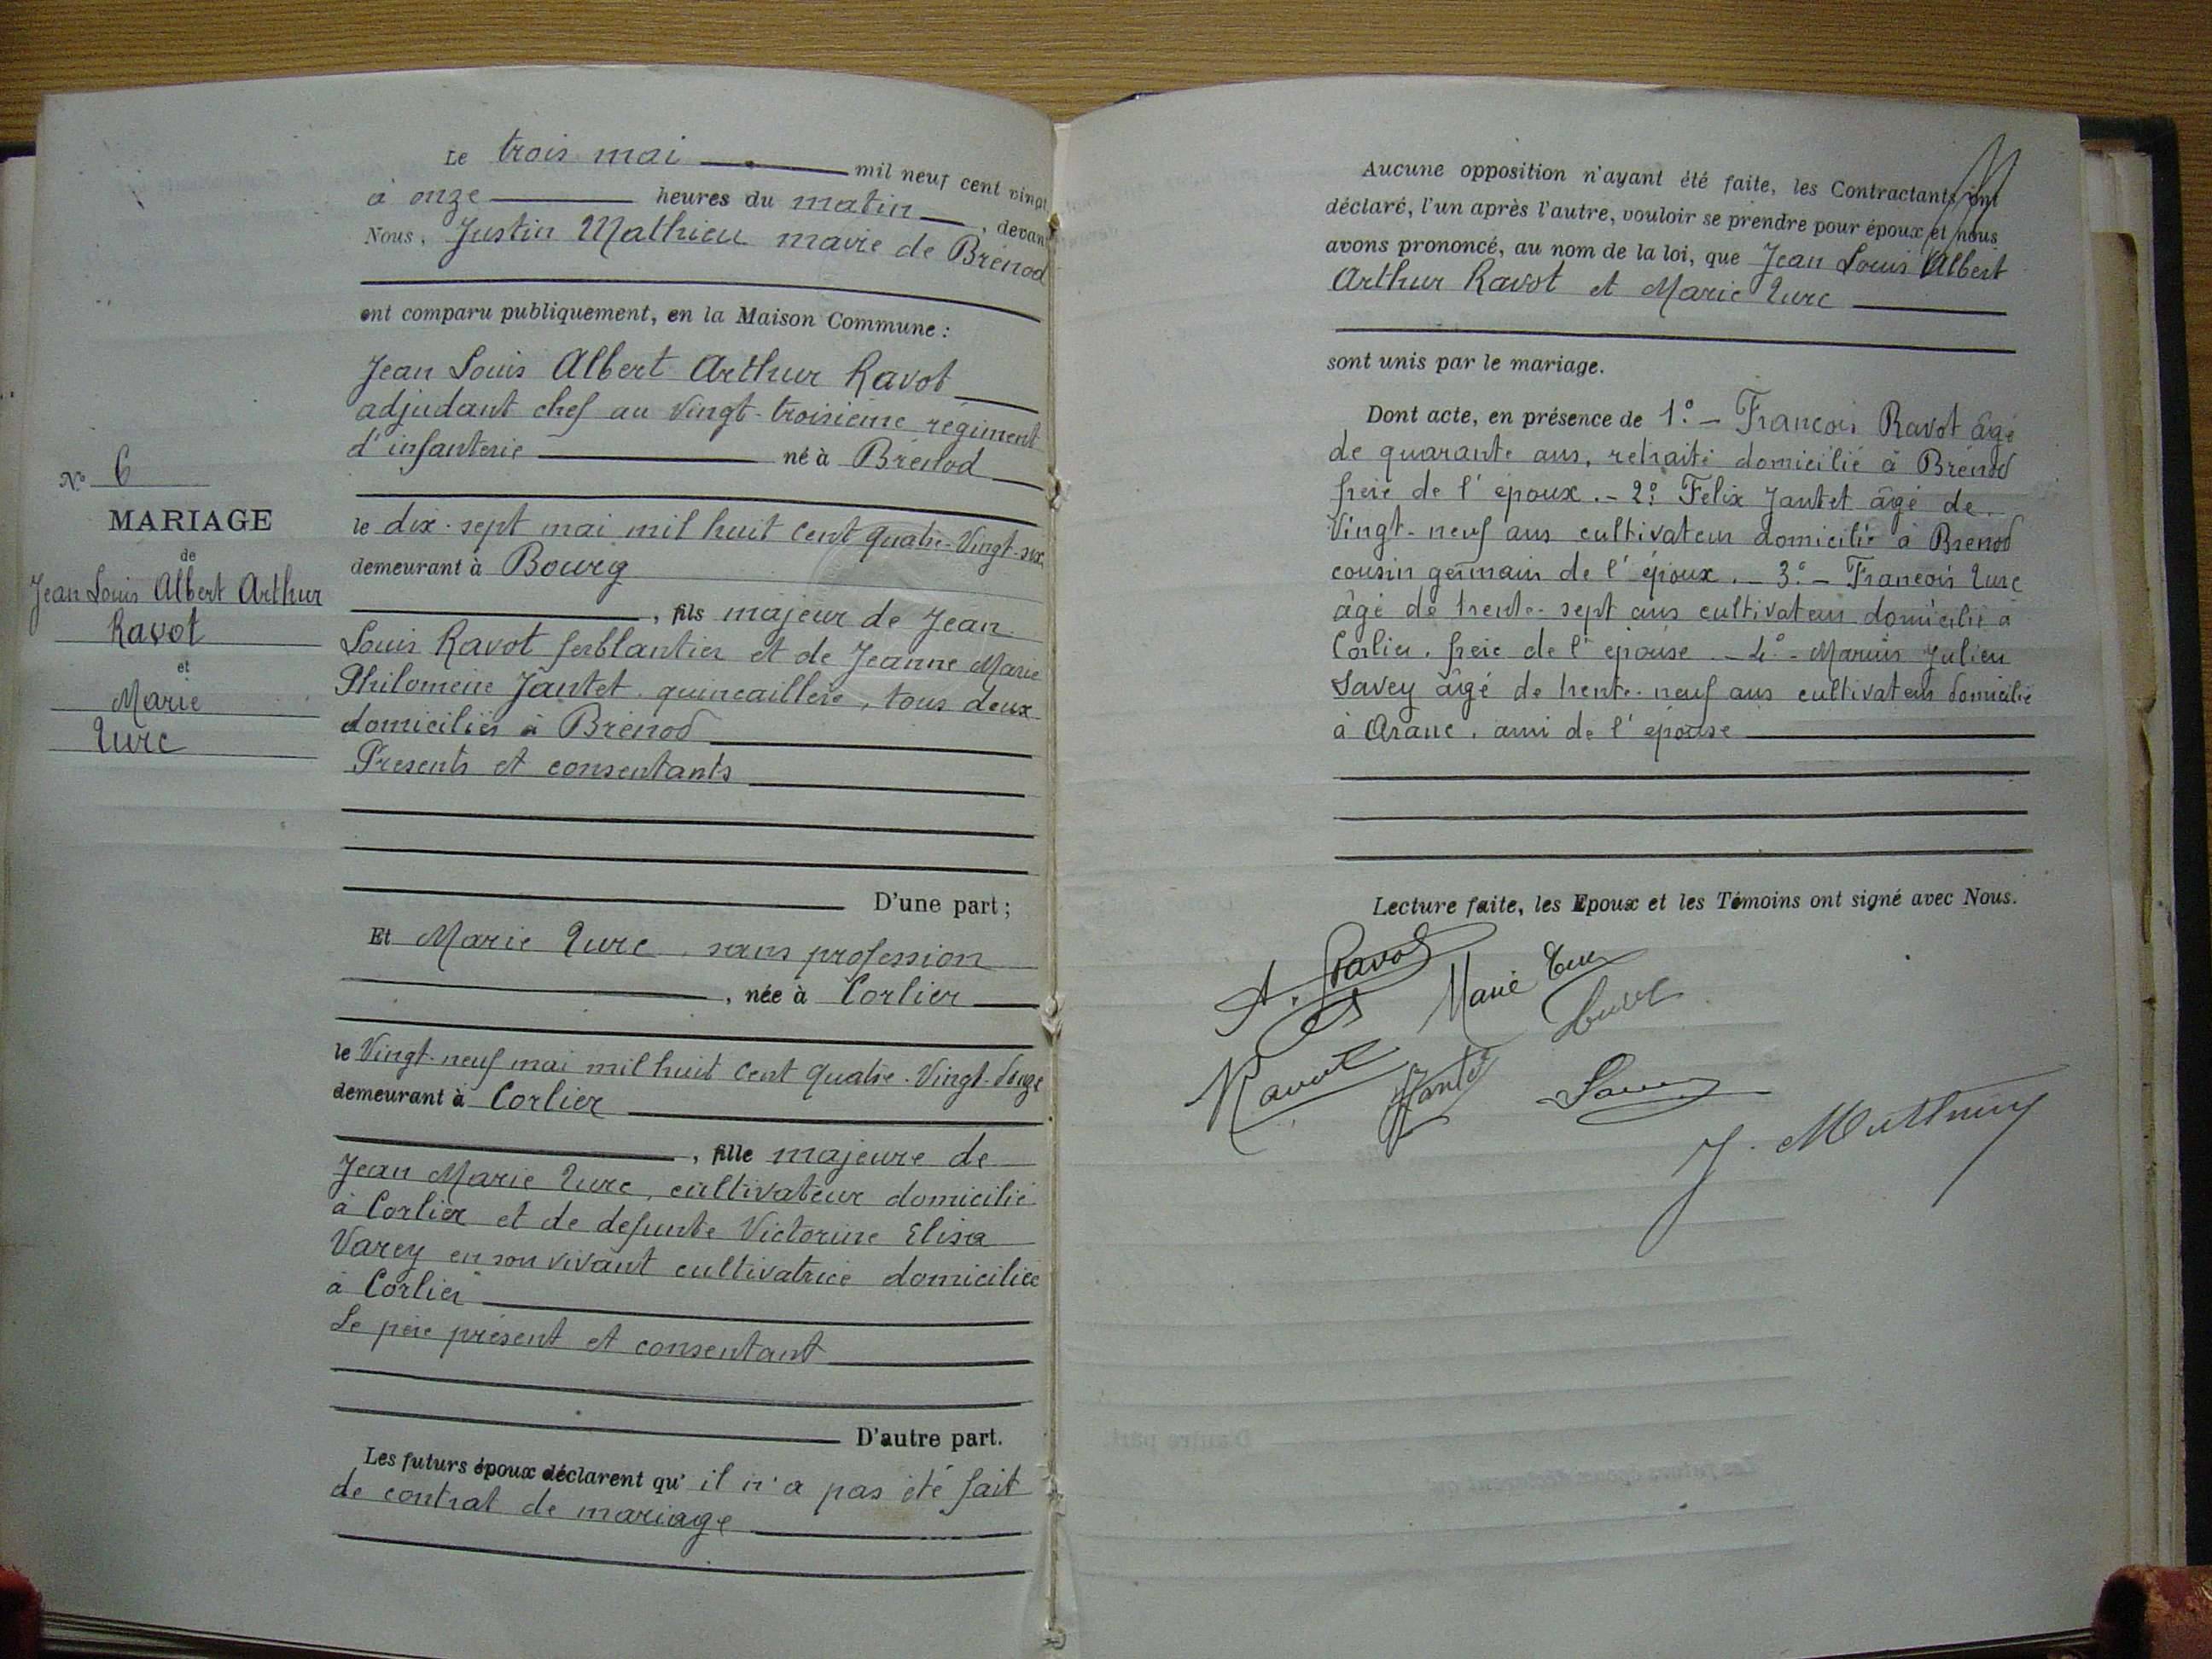 Le trois mai mil neuf cent vingt
à onze heures du matin, devant
Nous, Justin Mathieu maire de Brénod
ont comparu publiquement, en la Maison Commune :
Jean Louis Albert Arthur Ravot
adjudant chef au vingt-troisième régiment
d'infanterie né à Brénod
le dix-sept mai mil huit cent quatre-vingt-six
demeurant à Bourg
, fils majeur de Jean
Louis Ravot ferblantier et de Jeanne Marie
Philomène Jantet quincaillère, tous deux
domiciliés à Brénod
Présents et consentants
D'une part ;
Et Marie Turc, sans profession
, née à Corlier
le vingt-neuf mai mil huit cent quatre-vingt-douze
demeurant à Corlier
, fille majeure de
Jean Marie Turc, cultivateur domicilié
à Corlier et de défunte Victorine Elisa
Varey en son vivant cultivatrice domiciliée
à Corlier
Le père présent et consentant
D'autre part.
Les futurs époux déclarent qu'il n'a pas été fait
de contrat de mariage
N° 6
MARIAGE
de
Jean Louis Albert Arthur
Ravot
et
Marie
Turc
Aucune opposition n'ayant été faite, les Contractants ont
déclaré, l'un après l'autre, vouloir se prendre pour époux et nous
avons prononcé, au nom de la loi, que Jean Louis Albert
Arthur Ravot et Marie Turc
sont unis par le mariage.
Dont acte, en présence de 1° - François Ravot âgé
de quarante ans, retraité domicilié à Brénod
frère de l'époux. - 2° Félix Jantet âgé de
vingt-neuf ans cultivateur domicilié à Brénod
cousin germain de l'époux. - 3° - François Turc
âgé de trente-sept ans cultivateur domicilié à
Corlier, frère de l'épouse - 4° - Marius Julien
Savey âgé de trente-neuf ans cultivateur domicilié
à Aranc, ami de l'épouse
Lecture faite, les Epoux et les Témoins ont signé avec Nous.
A. Ravot
Marie Turc
Turc
Ravot
Jantet
Savey
J. Mathieu